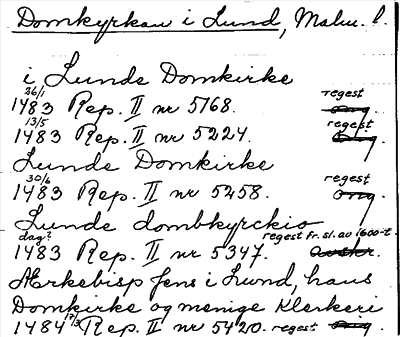 Domkyrkan i Lund, Malm. l.
i Lunde Domkirke
26/1 regest
1483 Rep. II nr 5168. orig
13/5 regest
1483 Rep. II nr 5224. orig.
Lunde Domkirke
30/6 regest
1483 Rep. II nr 5258. orig
Lunde dombkyrckio
dag? regest fr. sl. av 1600-t.
1483 Rep. II nr 5347. avskr.
Ærkebisp Jens i Lund, hans
Domkirke og menige Klerkeri
1484 17/3 Rep. II nr 5420. regest orig